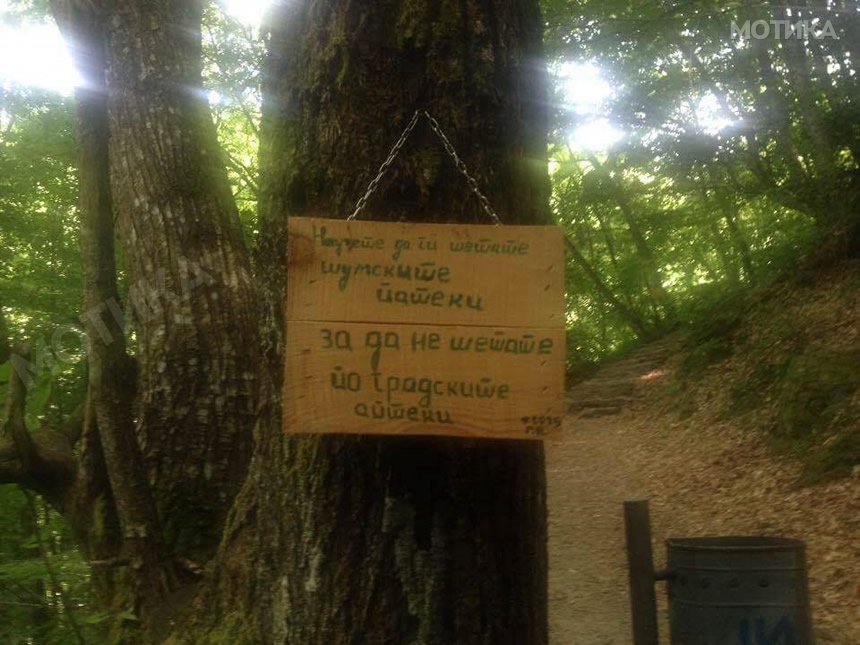 МОТИКА
Научете да ги шетате
шумските
патеки
за да не шетате
по градските
аптеки
МОТИКА